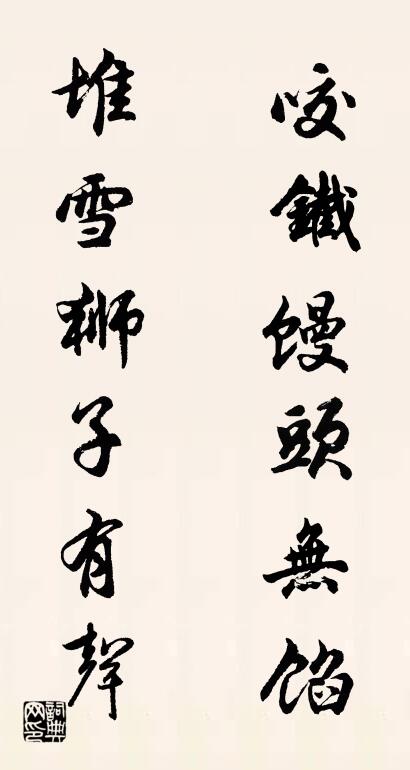 咬鐵馒頭無馅
堆雪獅子有聲
詞典网印